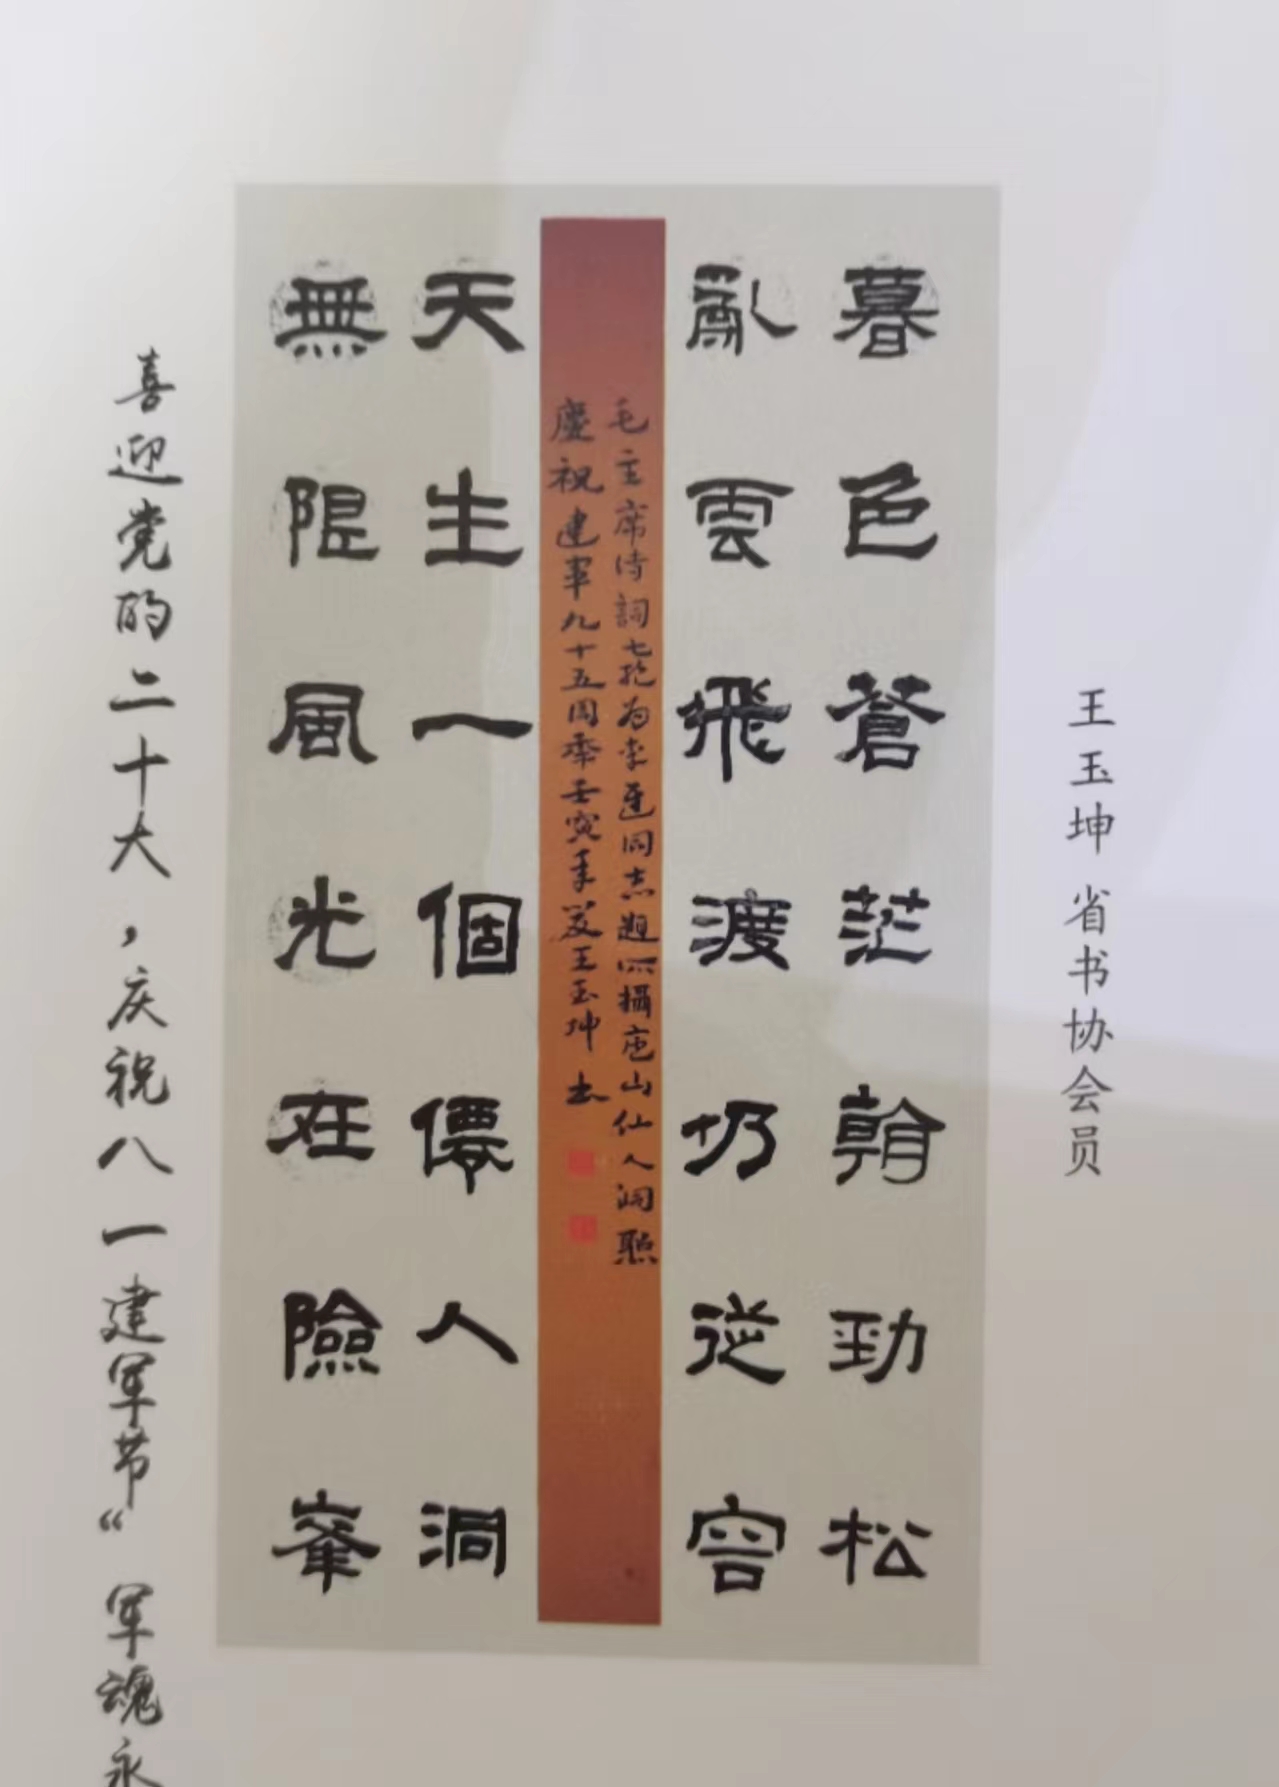 王玉坤 省书协会员
暮色蒼茫看勁松
亂雲飛渡仍從容
毛主席诗詞七绝为李進同志題所攝庐山仙人洞照
慶祝建軍九十五周年壬寅年夏王玉坤书
天生一個僊人洞
無限風光在險峯
喜迎党的二十大，庆祝八一建军节“军魂永